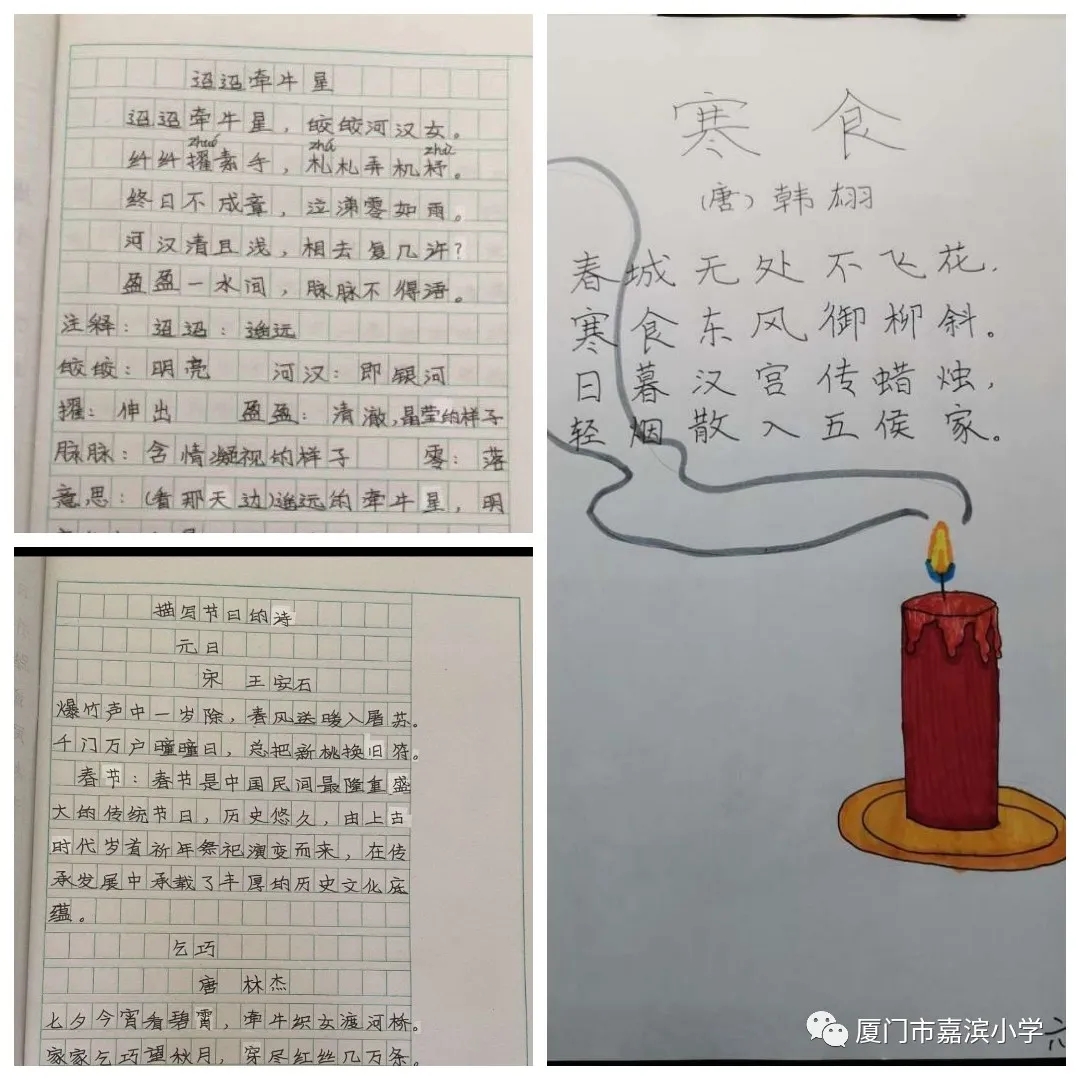 迢迢牵牛星
迢迢牵牛星，皎皎河汉女。
zhuó zhá zhù
纤纤擢素手，札札弄机杼。
终日不成章，泣涕零如雨。
河汉清且浅，相去复几许？
盈盈一水间，脉脉不得语。
注释：迢迢：遥远
皎皎：明亮 河汉：即银河
擢：伸出 盈盈：清澈，晶莹的样子
脉脉：含情凝视的样子 零：落
意思：（看那天边）遥远的牵牛星，明
描写节日的诗
元日
宋 王安石
爆竹声中一岁除，春风送暖入屠苏。
千门万户曈曈日，总把新桃换旧符。
春节：春节是中国民间最隆重盛
大的传统节日，历史悠久，由上古
时代岁首祈年祭祀演变而来，在传
承发展中承载了丰厚的历史文化底
蕴。
乞巧
唐 林杰
七夕今宵看碧霄，牵牛织女渡河桥。
家家乞巧望秋月，穿尽红丝几万条。
寒食
（唐）韩翃
春城无处不飞花，
寒食东风御柳斜。
日暮汉宫传蜡烛，
轻烟散入五侯家。
六
厦门市嘉滨小学